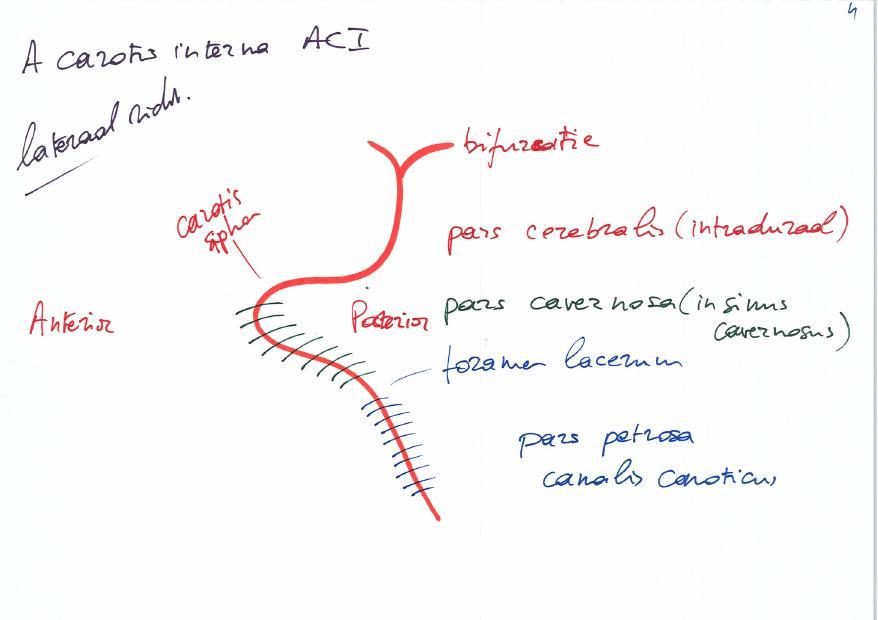 4
A carotis interna ACI
lateraal
bifurcatie
carotis
siphon
pars cerebralis (intraduraal)
Anterior
Posterior
pars cavernosa (in sinus
cavernosus)
foramen lacerum
pars petrosa
canalis caroticus